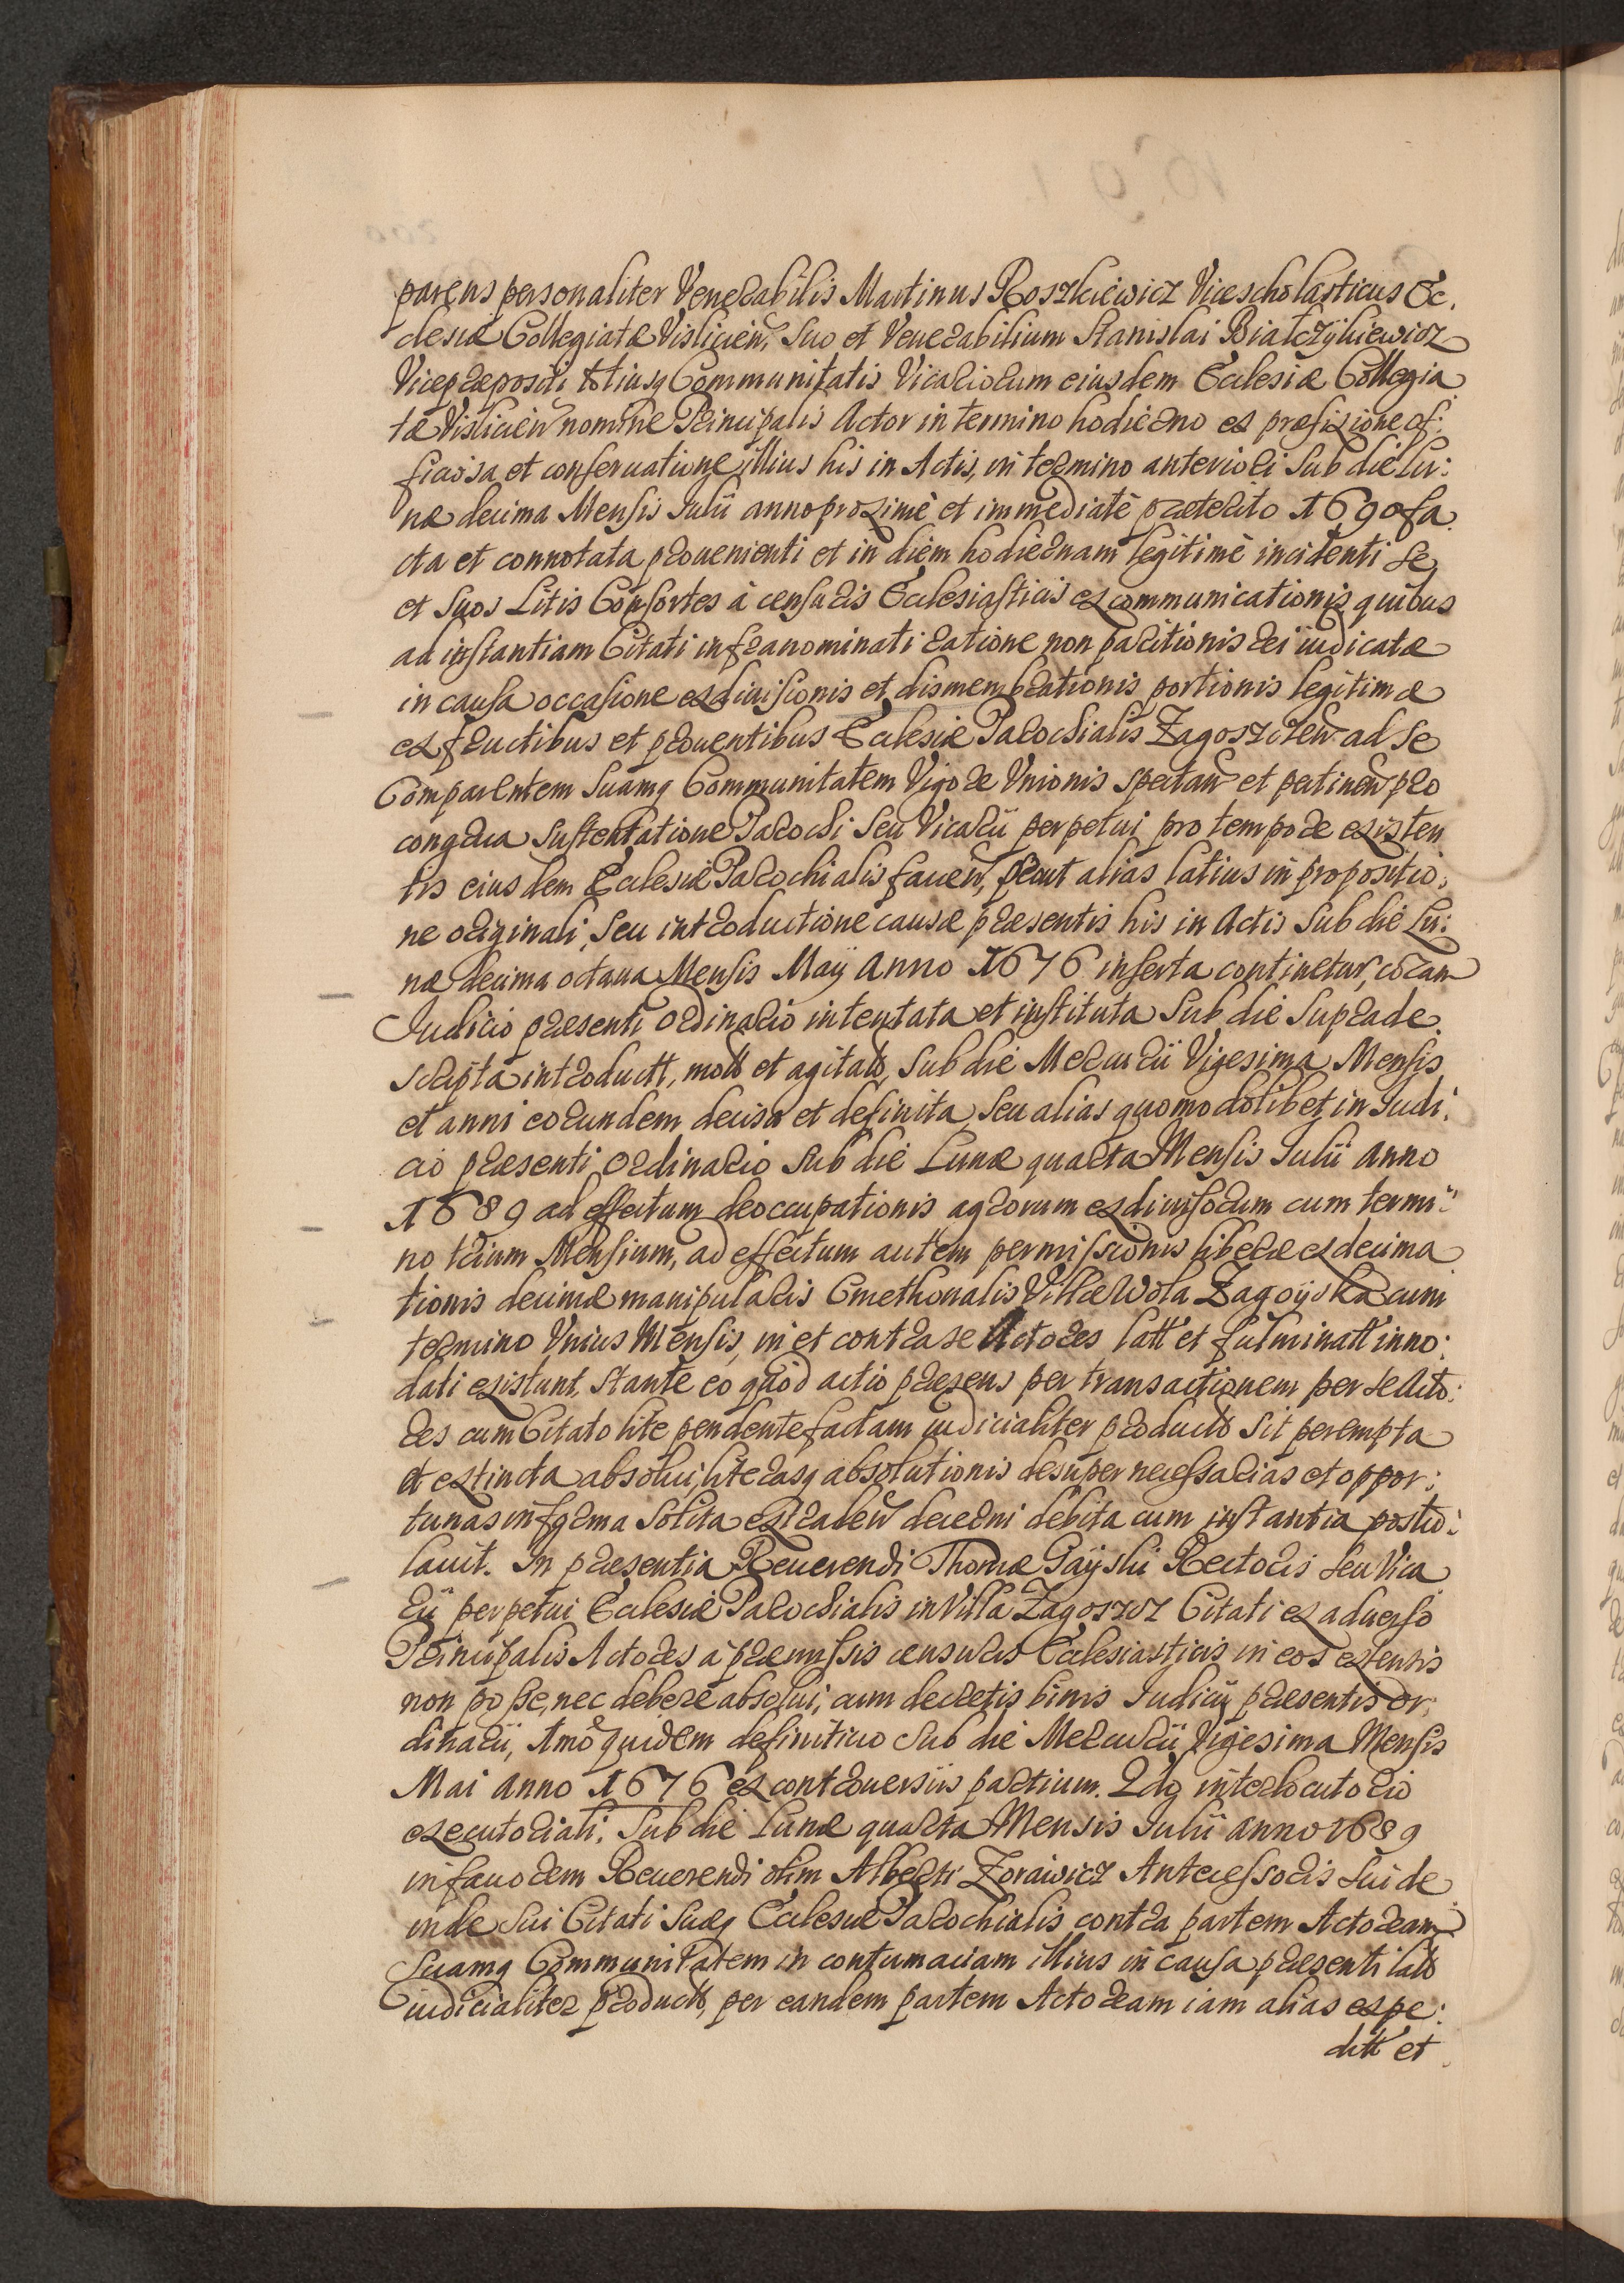 parens personaliter Venerabilis Martinus Roszkiewicz Vicescholasticus Ec.
clesiæ Collegiatæ Vislicien, Suo et Venerabilium Stanislai Białczÿkiewicz
Vicepræpositi totiusq Communitatis Vicariorum eiusdem Ecclesiæ Collegia
tæ Vislicien nomine Principalis Actor in termino hodierno ex præfixione of:
ficiosa et conseruatione illius his in Actis, in termino anteriori Sub die Lu:
næ decima Mensis Julii anno proximè et immediatè præterito 1690 fa
cta et connotata prouenienti et in diem hodiernam legitimè incidenti Se
et Suos Litis Consortes à censuris Ecclesiasticis excommunicationis quibus
ad instantiam Citati infranominati ratione non paritionis rei iudicatæ
in causa occasione exdiuisionis et dismembrationis portionis legitimæ
ex fructibus et prouentibus Ecclesiæ Parochialis Zagoszczen ad Se
Comparentem Suamq Communitatem Vigore Vnionis spectan et pertinen pro
congrua Sustentatione Parochi Seu Vicarii perpetui pro tempore existen
tis eiusdem Ecclesiæ Parochialis facien, prout alias latius in propositio:
ne originali, Seu introductione causæ præsentis his in Actis Sub die Lu:
næ decima octaua Mensis Maÿ Anno 1676 inserta continetur, coram
Judicio præsenti Ordinario intentata et instituta Sub die Suprade
scripta introductt, mott et agitatt, Sub die Mercurii Vigesima Mensis
et anni eorundem decisa et definita, Seu alias quomodolibet in Judi:
cio præsenti Ordinario Sub die Lunæ quarta Mensis Julii Anno
1689 ad effectum deoccupationis agrorum exdiuisorum cum termi:
no trium Mensium, ad effectum autem permissionis liberæ exdecima
tionis decimæ manipularis Cmethonalis Villæ Wola Zagoÿska cum
termino Vnius Mensis, in et contra se Actores latt et fulminatt inno:
dati existunt, Stante eo quòd actio præsens per transactionem per se Acto:
res cum Citato lite pendente factam iudicialiter product Sit perempta
et extincta absolui, literasq absolutionis desuper necessarias et oppor:
tunas in forma Solita extraden decerni debita cum instantia postu:
lauit. In præsentia Reuerendi Thomæ Gaÿski Rectoris Seu Vica
rii perpetui Ecclesiæ Parochialis in Villa Zagoszcz Citati ex aduerso
Principalis Actores à præmissis censuris Ecclesiasticis in eos extensis
non posse, nec debere absolui, cum decretis binis Judicii præsentis Or:
dinarii, 1mo quidem definitiuo Sub die Mercurii Vigesima Mensis
Mai Anno 1676 ex controuersiis partium. 2do interlocutorio
executoriali, Sub die Lunæ quarta Mensis Julii Anno 1689
in fauorem Reuerendi olim Alberti Zorawicz Antecessoris Sui de
inde Sui Citati Suæq Ecclesiæ Parochialis contra partem Actoream
Suamq Communitatem in contumaciam illius in causa præsenti latt
iudicialiter product, per eandem partem Actoream iam alias expe:
ditt et